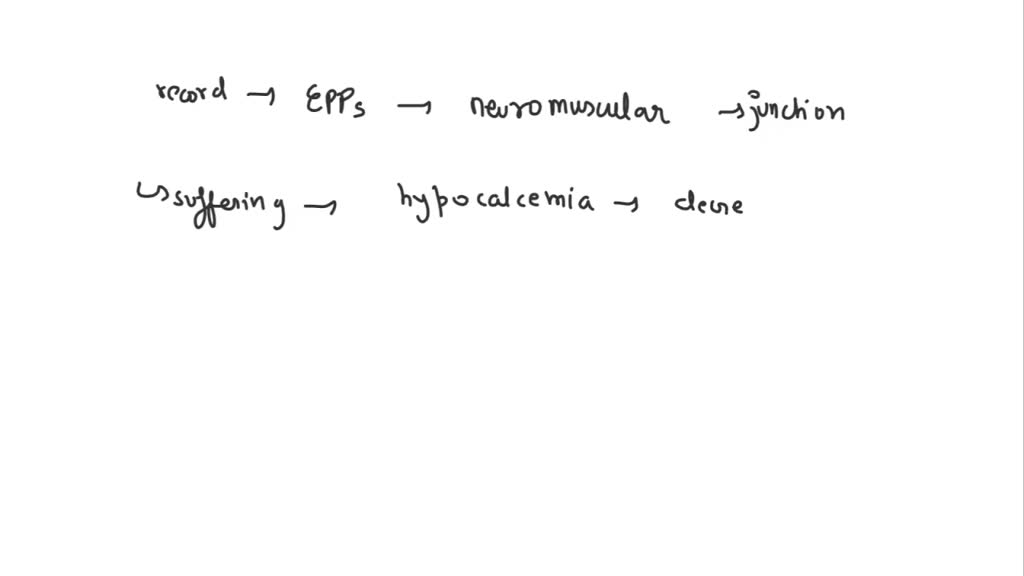 record → EPPs → neuromuscular → junction
↳ suffering → hypocalcemia → decre